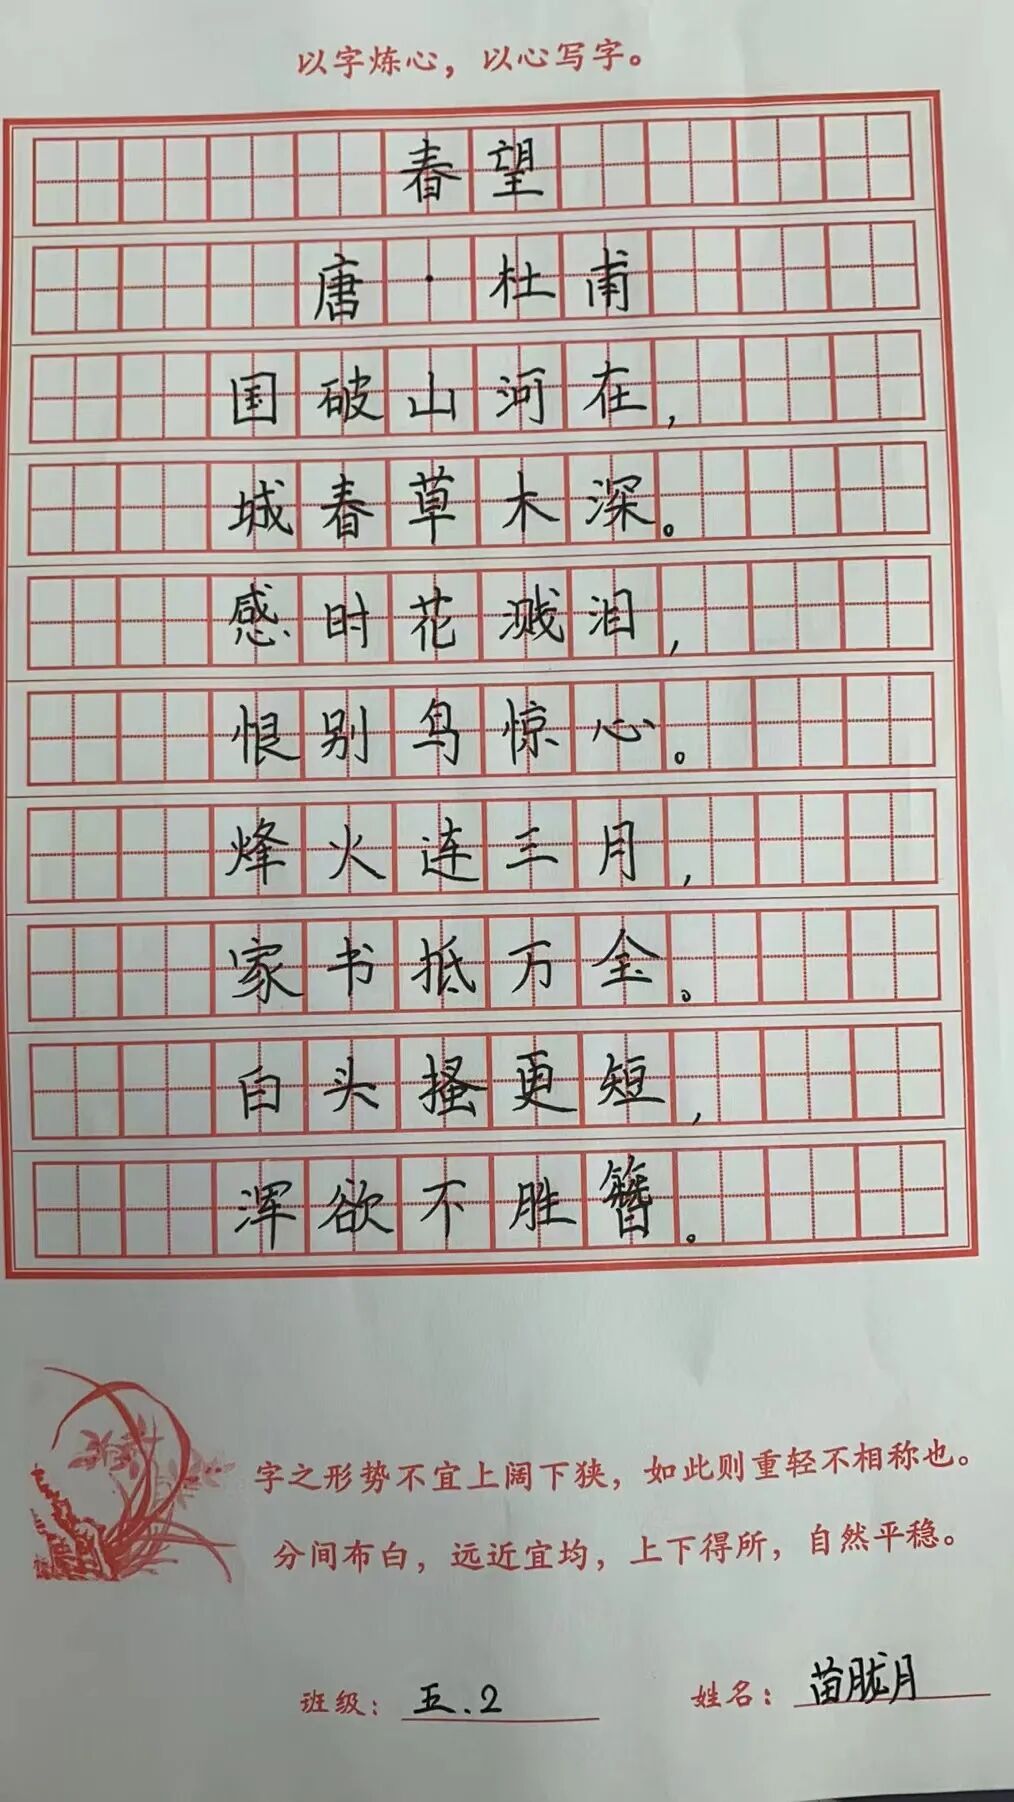 以字炼心，以心写字。
春望
唐·杜甫
国破山河在，
城春草木深。
感时花溅泪，
恨别鸟惊心。
烽火连三月，
家书抵万金。
白头搔更短，
浑欲不胜簪。
字之形势不宜上阔下狭，如此则重轻不相称也。
分间布白，远近宜均，上下得所，自然平稳。
班级：五.2 姓名：苗胧月